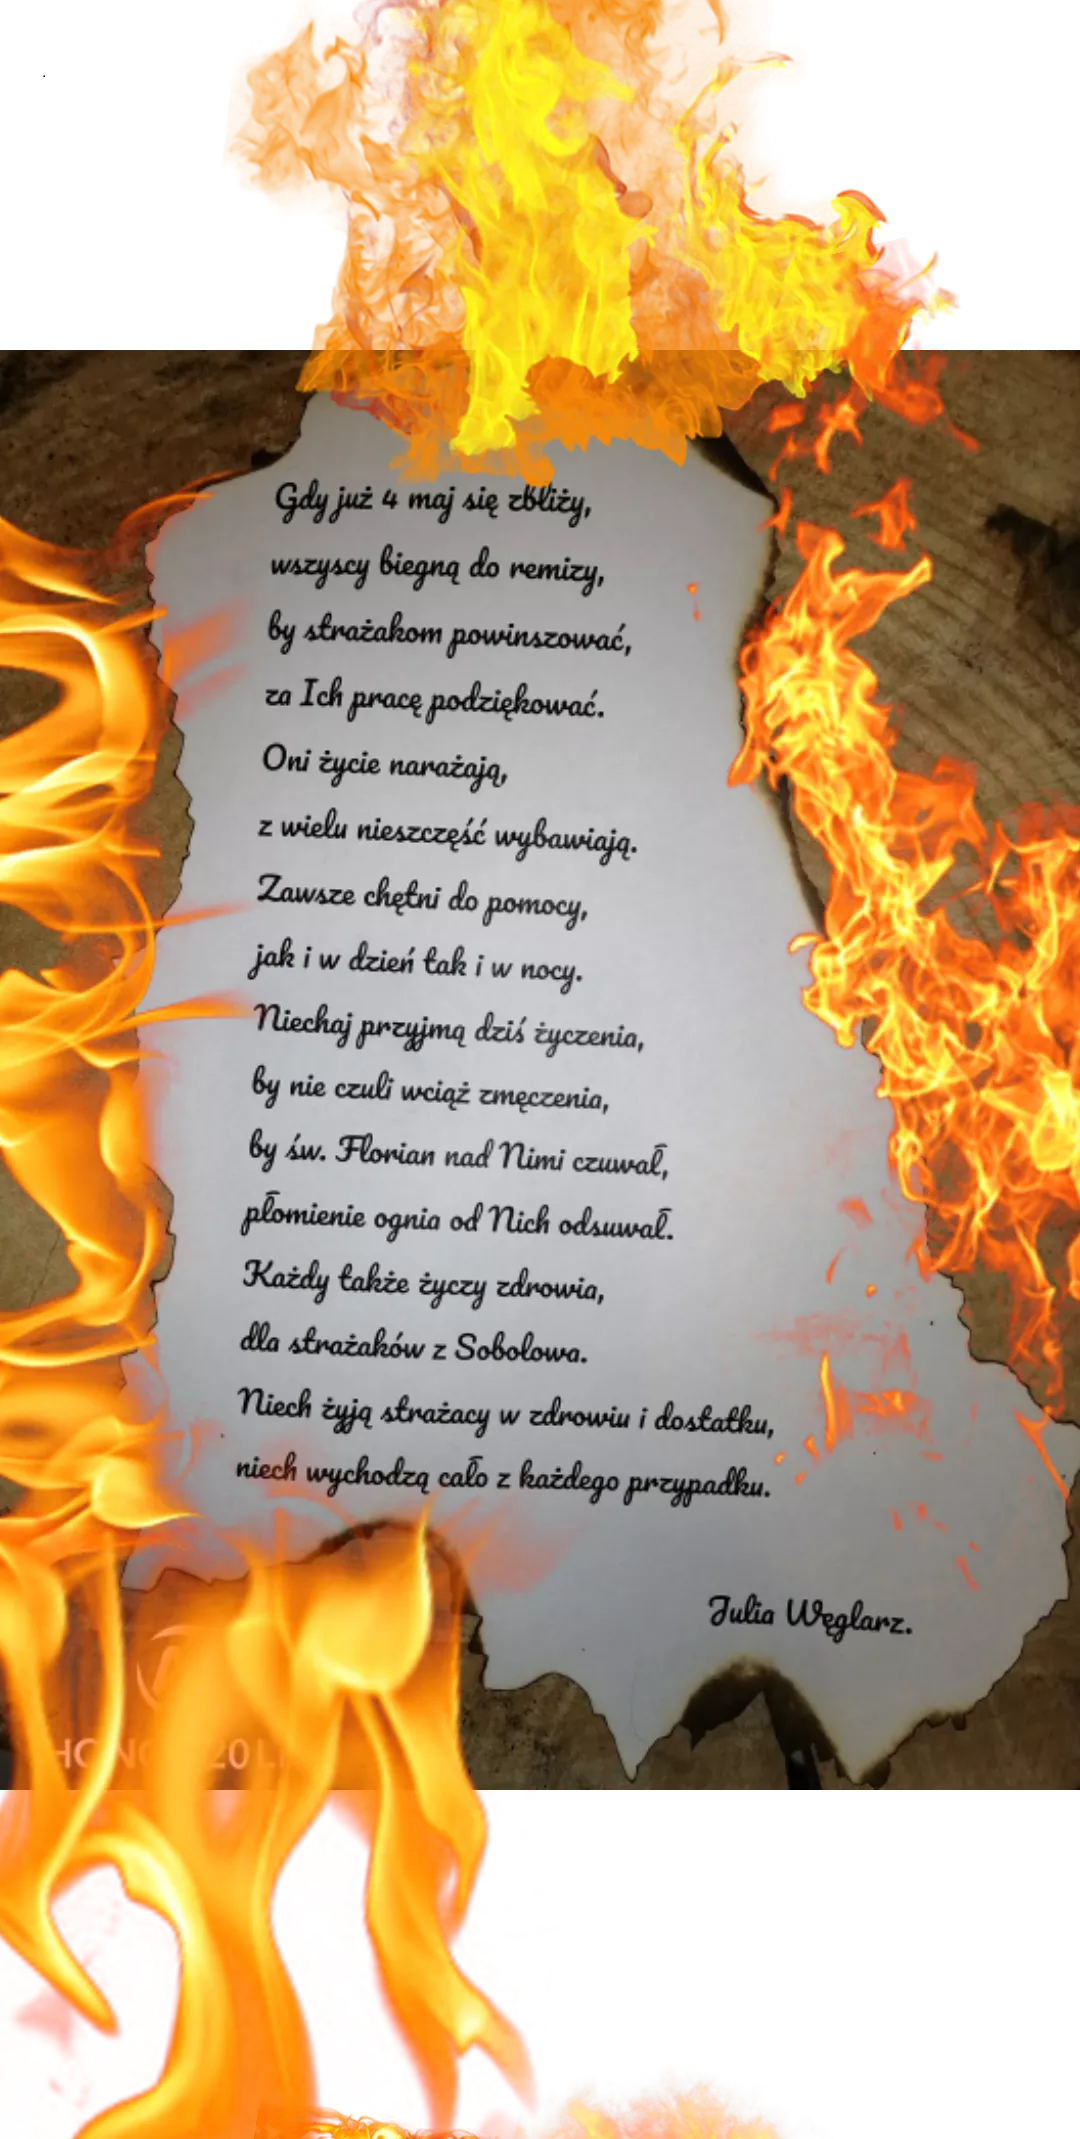 Gdy już 4 maj się zbliży,
wszyscy biegną do remizy,
by strażakom powinszować,
za Ich pracę podziękować.
Oni życie narażają,
z wielu nieszczęść wybawiają.
Zawsze chętni do pomocy,
jak i w dzień tak i w nocy.
Niechaj przyjmą dziś życzenia,
by nie czuli wciąż zmęczenia,
by św. Florian nad Nimi czuwał,
płomienie ognia od Nich odsuwał.
Każdy także życzy zdrowia,
dla strażaków z Sobolowa.
Niech żyją strażacy w zdrowiu i dostatku,
niech wychodzą cało z każdego przypadku.
Julia Węglarz.